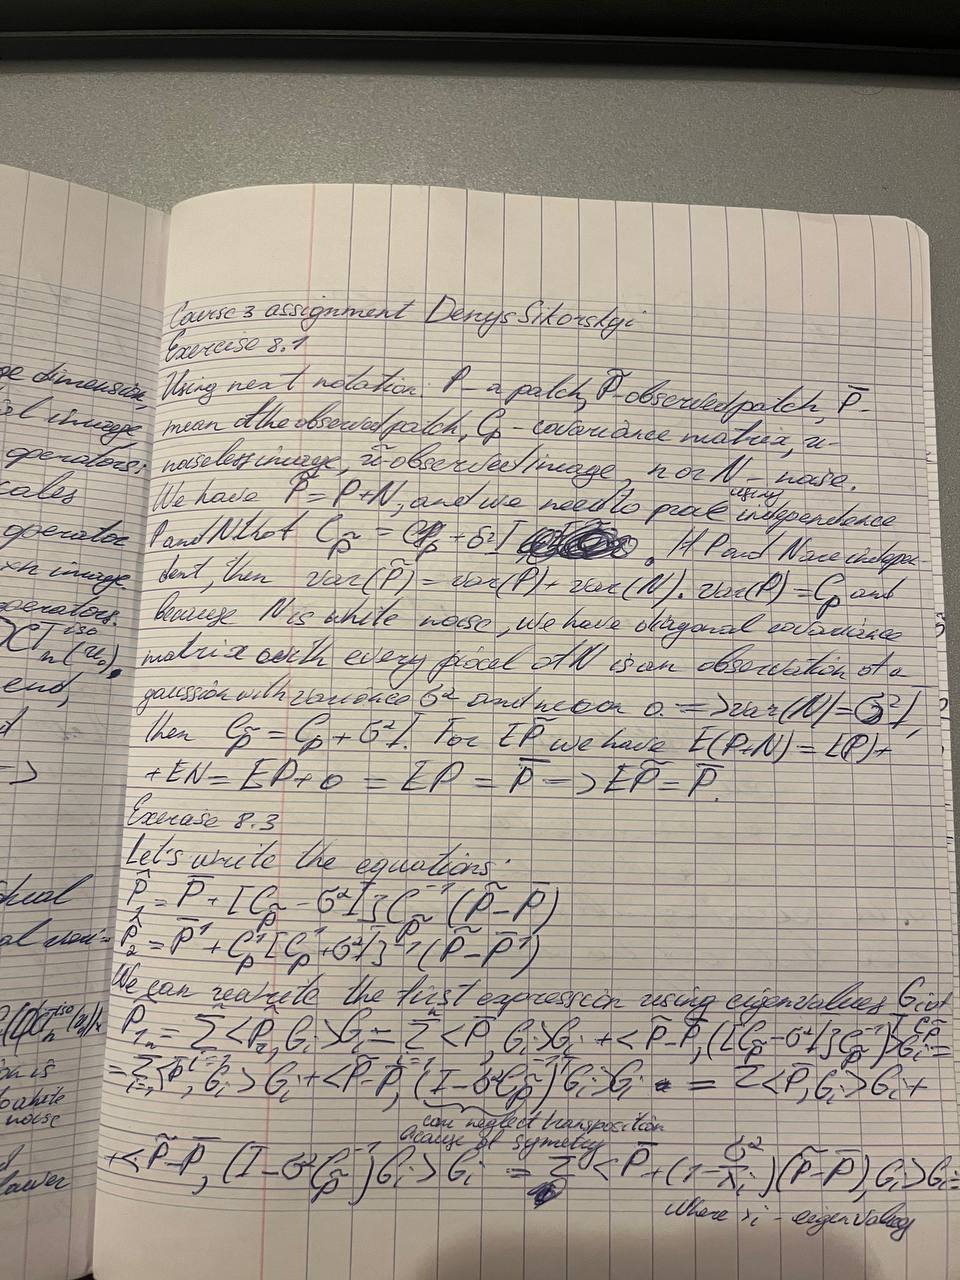 ge dimension,
image
operators:
cales
operator
image.
operators.
end,
=>
noise
Course 3 assignment Denys Sikorskyi
Exercise 8.1
Using next notation: P - a patch, P̃ - observed patch, P̄ -
mean of the observed patch, C_p - covariance matrix, u -
noiseless image, ũ - observed image, n or N - noise.
We have P̃ = P + N, and we need to prove using independence
P and N that C_p̃ = C_p + σ²I. If P and N are indepen-
dent, then var(P̃) = var(P) + var(N). var(P) = C_p and
because N is white noise, we have diagonal covariance
matrix with every pixel of N is an observation of a
gaussian with variance σ² and mean 0. => var(N) = σ²I,
then C_p̃ = C_p + σ²I. For EP̃ we have E(P+N) = E(P) +
+ EN = EP + 0 = EP = P̄ => EP̃ = P̄.
Exercise 8.3
Let's write the equations:
P̂₁ = P̄ + [C_p̃ - σ²I] C_p̃⁻¹ (P̃ - P̄)
P̂₂ = P̄¹ + C_p¹ [C_p¹ + σ²I]⁻¹ (P̃ - P̄¹)
We can rewrite the first expression using eigenvalues G_i of C_p̃
P̂₁ = Σ <P̂₁, G_i> G_i = Σ <P̄, G_i> G_i + <P̃ - P̄, ([C_p̃ - σ²I] C_p̃⁻¹) G_i> G_i =
= Σ <P̄, G_i> G_i + <P̃ - P̄, (I - σ² C_p̃⁻¹) G_i> G_i = Σ <P̄, G_i> G_i +
can neglect transposition
because of symetry
+ <P̃ - P̄, (I - σ² C_p̃⁻¹) G_i> G_i = Σ <P̄ + (1 - σ²/λ_i)(P̃ - P̄), G_i> G_i =
where λ_i - eigenvalues